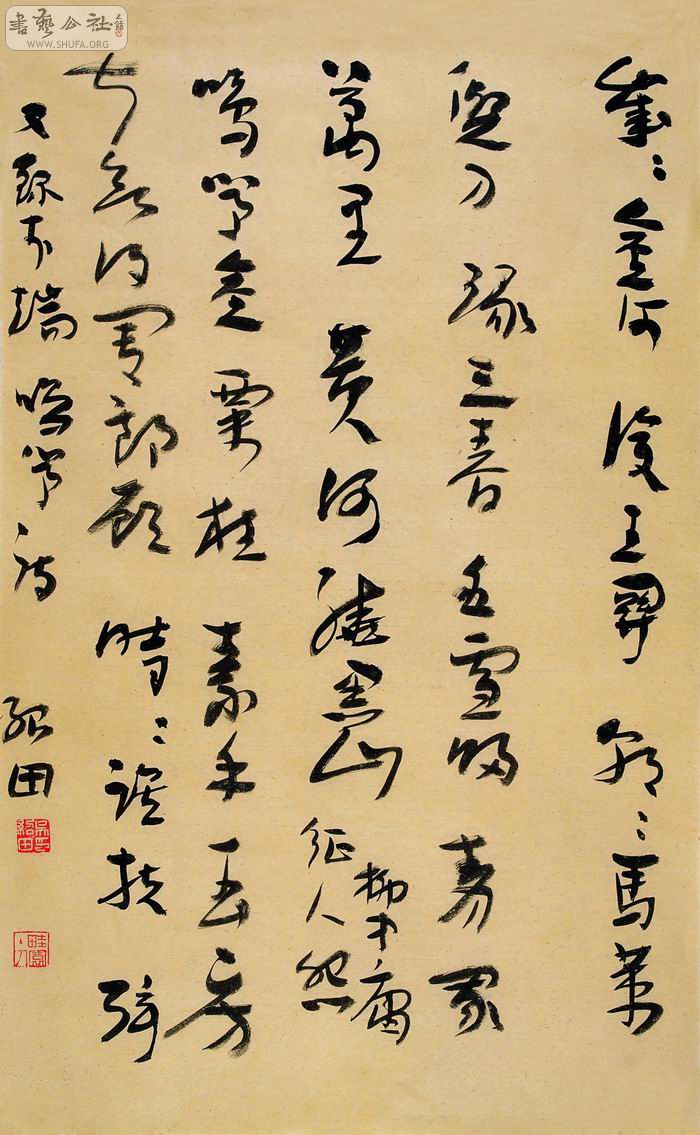 書藝公社
WWW.SHUFA.ORG
歲〻金河復玉關朝〻馬策
與刀環三春白雪歸青冢
萬里黃河繞黑山征人怨柳中庸
鳴箏金粟柱素手玉房
前欲得周郎顧時〻誤拂弦
又錄李端鳴箏詩紹田